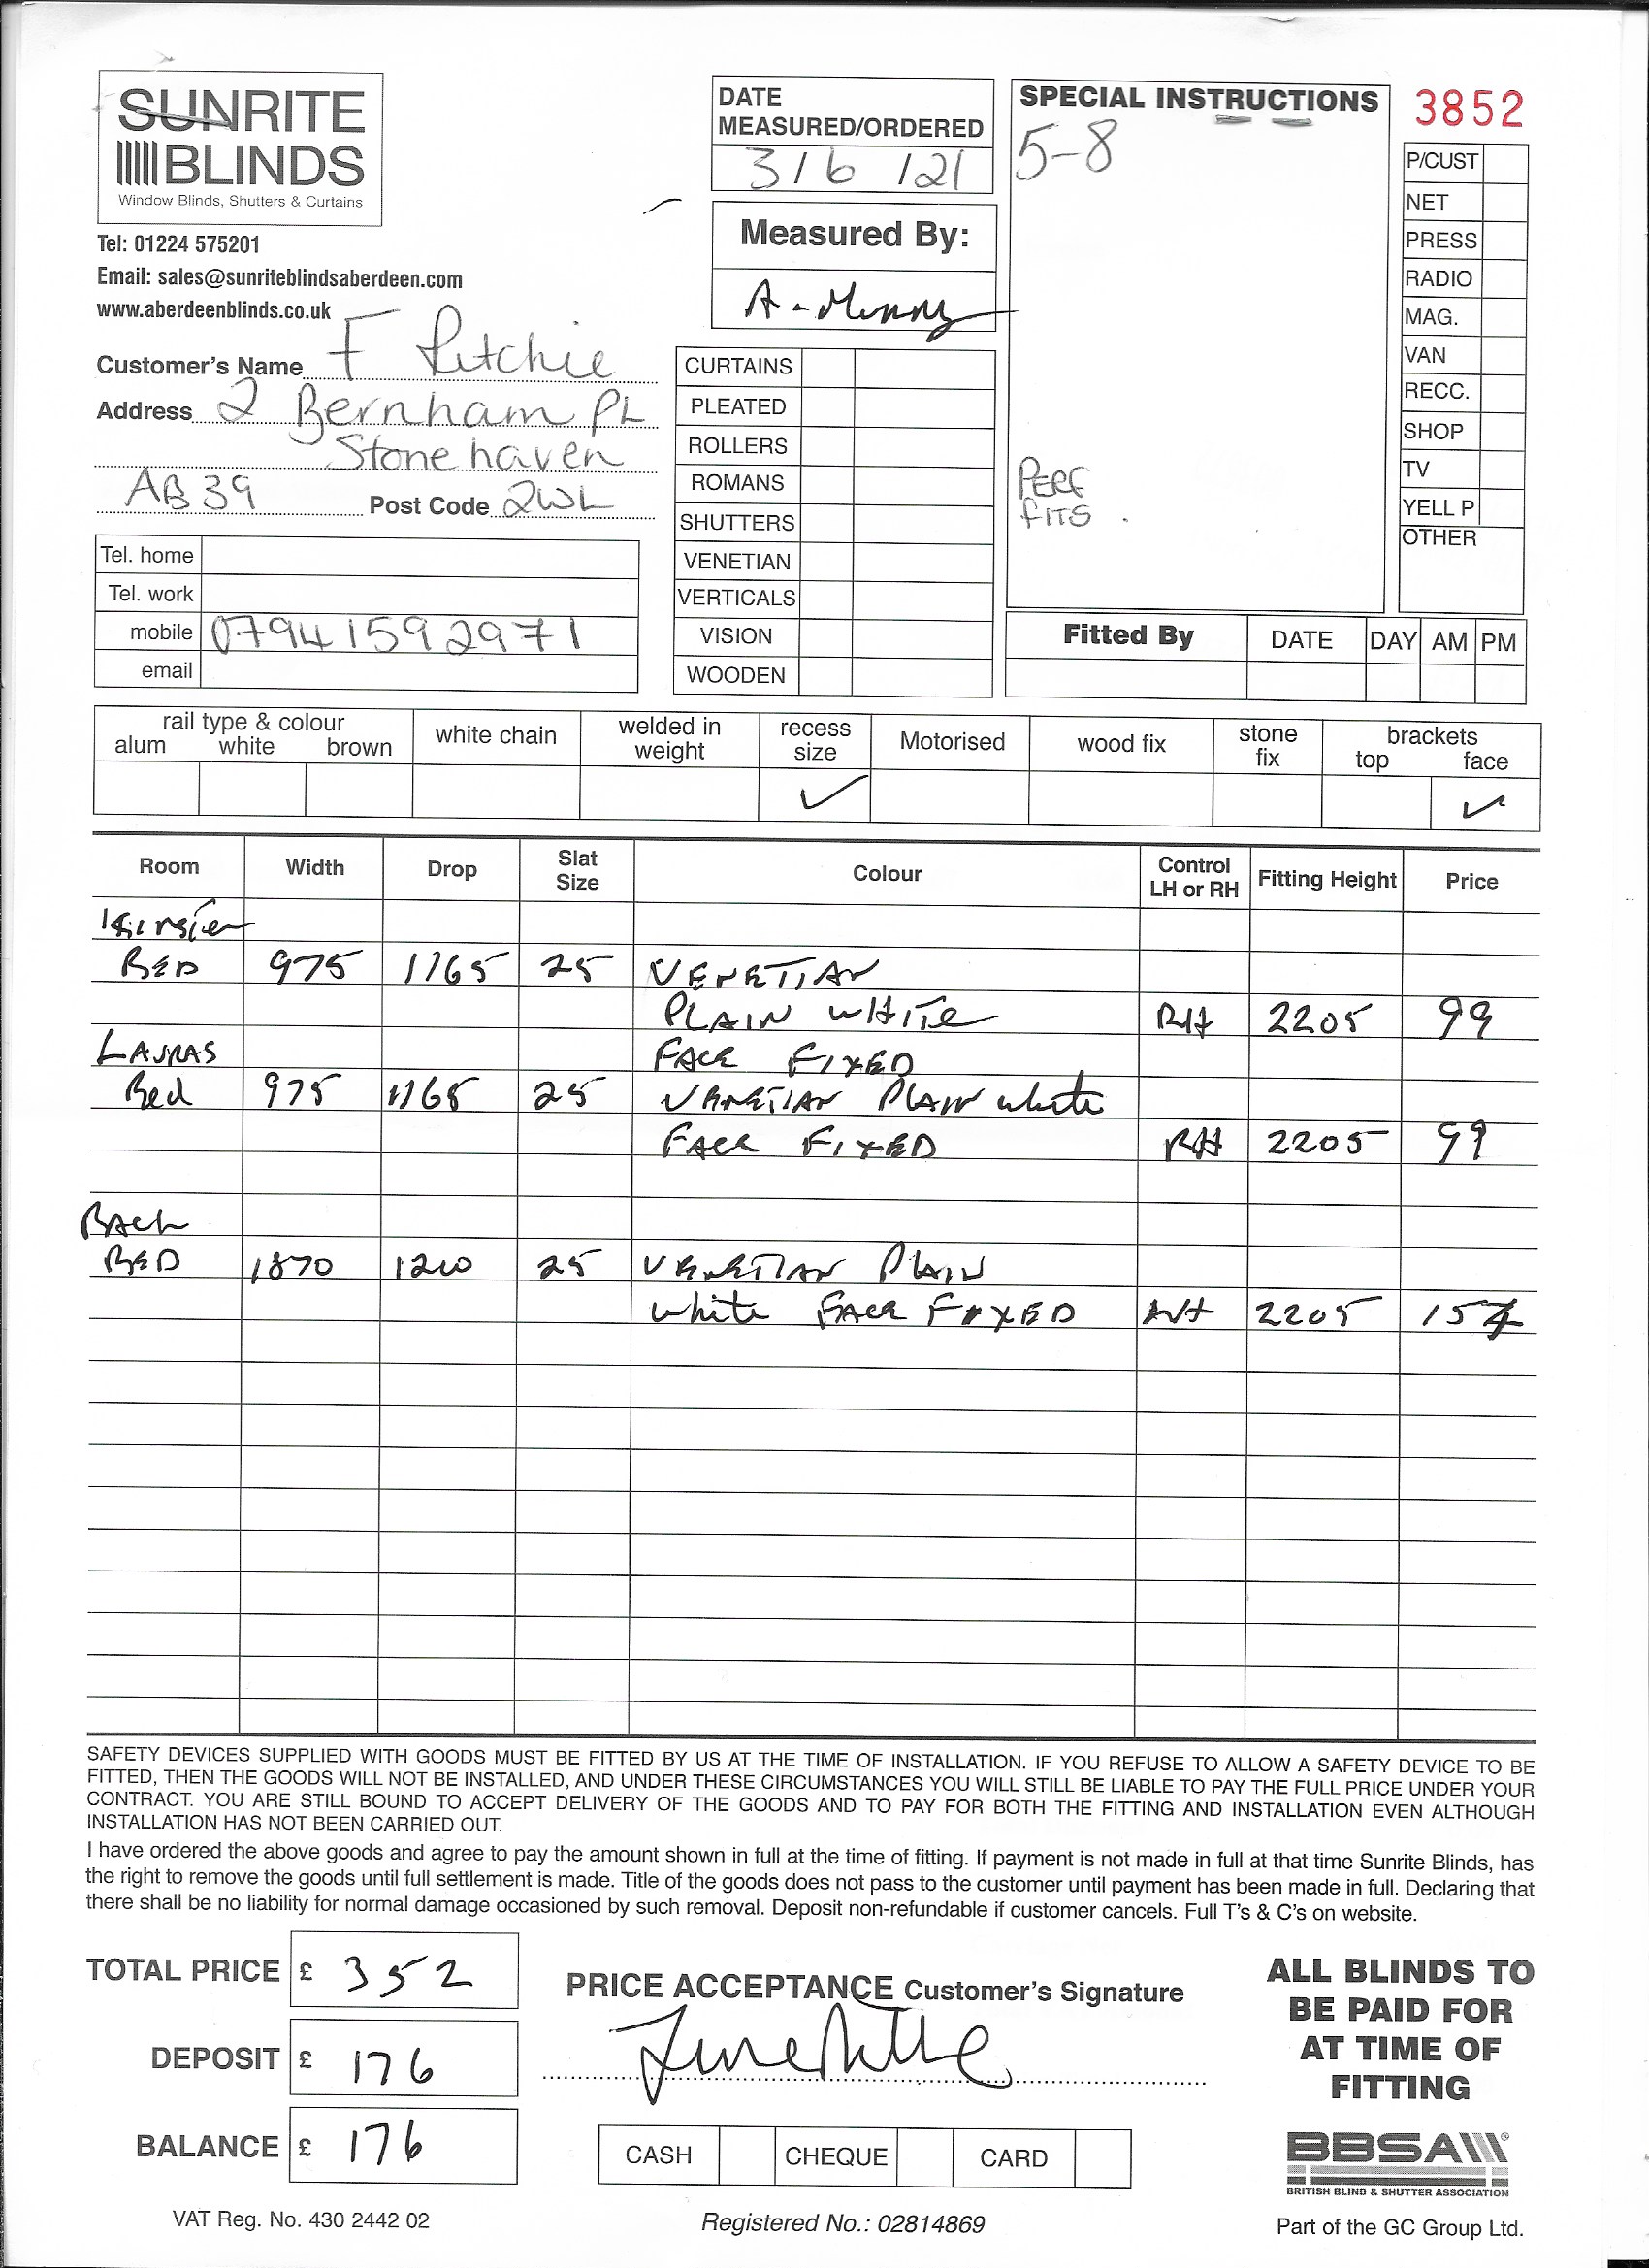 SUNRITE
BLINDS
Window Blinds, Shutters & Curtains
Tel: 01224 575201
Email: sales@sunriteblindsaberdeen.com
www.aberdeenblinds.co.uk
Customer's Name F Ritchie
Address 2 Bernham PL
Stonehaven
AB39 Post Code 2WL
Tel. home
Tel. work
mobile 07941592971
email
DATE
MEASURED/ORDERED
3/6/21
Measured By:
A.
CURTAINS
PLEATED
ROLLERS
ROMANS
SHUTTERS
VENETIAN
VERTICALS
VISION
WOODEN
SPECIAL INSTRUCTIONS
5-8
PERF
FITS
3852
P/CUST
NET
PRESS
RADIO
MAG.
VAN
RECC.
SHOP
TV
YELL P
OTHER
Fitted By DATE DAY AM PM
rail type & colour
alum white brown
white chain
welded in
weight
recess
size
✓
Motorised
wood fix
stone
fix
brackets
top face
✓
Room Width Drop Slat Size Colour Control LH or RH Fitting Height Price
Kirsten
BED 975 1165 25 VENETIAN
PLAIN WHITE RH 2205 99
LAURAS FACE FIXED
Bed 975 1165 25 VENETIAN PLAIN white
FACE FIXED RH 2205 99
BACK
BED 1870 1210 25 VENETIAN PLAIN
white FACE FIXED 2205 154
SAFETY DEVICES SUPPLIED WITH GOODS MUST BE FITTED BY US AT THE TIME OF INSTALLATION. IF YOU REFUSE TO ALLOW A SAFETY DEVICE TO BE
FITTED, THEN THE GOODS WILL NOT BE INSTALLED, AND UNDER THESE CIRCUMSTANCES YOU WILL STILL BE LIABLE TO PAY THE FULL PRICE UNDER YOUR
CONTRACT. YOU ARE STILL BOUND TO ACCEPT DELIVERY OF THE GOODS AND TO PAY FOR BOTH THE FITTING AND INSTALLATION EVEN ALTHOUGH
INSTALLATION HAS NOT BEEN CARRIED OUT.
I have ordered the above goods and agree to pay the amount shown in full at the time of fitting. If payment is not made in full at that time Sunrite Blinds, has
the right to remove the goods until full settlement is made. Title of the goods does not pass to the customer until payment has been made in full. Declaring that
there shall be no liability for normal damage occasioned by such removal. Deposit non-refundable if customer cancels. Full T's & C's on website.
TOTAL PRICE £ 352
DEPOSIT £ 176
BALANCE £ 176
PRICE ACCEPTANCE Customer's Signature
CASH CHEQUE CARD
ALL BLINDS TO
BE PAID FOR
AT TIME OF
FITTING
BBSA
BRITISH BLIND & SHUTTER ASSOCIATION
VAT Reg. No. 430 2442 02
Registered No.: 02814869
Part of the GC Group Ltd.